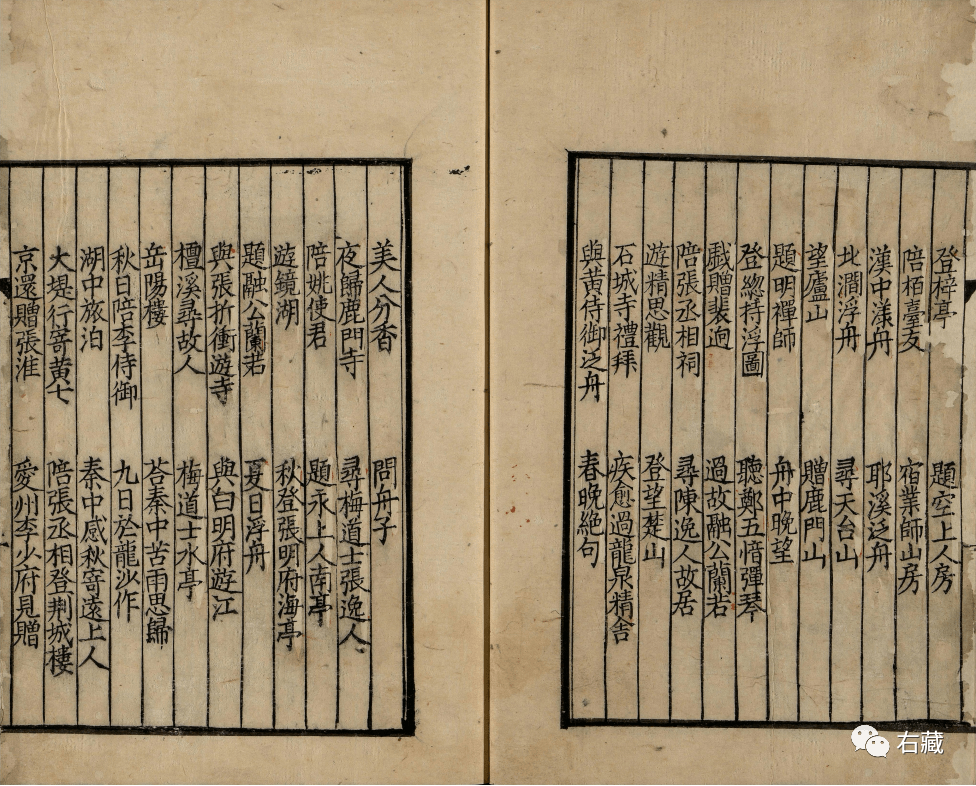 登梓亭 題空上人房
陪栢臺友 宿業師山房
漢中漾舟 耶溪泛舟
北澗浮舟 尋天台山
望廬山 贈鹿門山
題明禪師 舟中晚望
登緫持浮圖 聽鄭五愔彈琴
戲贈裴迥 過故融公蘭若
陪張丞相祠 尋陳逸人故居
遊精思觀 登望楚山
石城寺禮拜 疾愈過龍泉精舍
與黃侍御泛舟 春晚絕句
美人分香 問舟子
夜歸鹿門寺 尋梅道士張逸人
陪姚使君 題永上人南亭
遊鏡湖 秋登張明府海亭
題融公蘭若 夏日浮舟
與張折衝遊寺 與白明府遊江
檀溪尋故人 梅道士水亭
岳陽樓 荅秦中苦雨思歸
秋日陪李侍御 九日於龍沙作
湖中旅泊 秦中感秋寄遠上人
大堤行寄黃七 陪張丞相登荆城樓
京還贈張淮 愛州李少府見贈
右藏